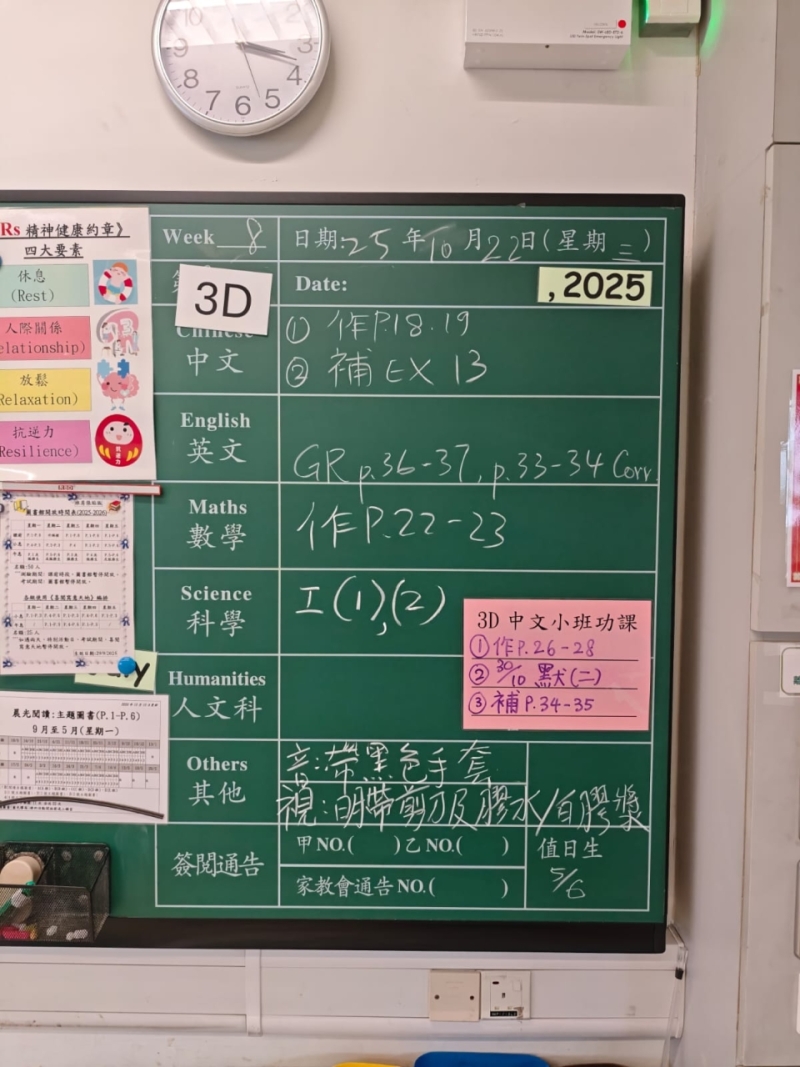 10
2
3
4
5
6
7
8
9
Rs 精神健康約章》
四大要素
休息
(Rest)
人際關係
elationship)
放鬆
Relaxation)
抗逆力
Resilience)
抗逆力
圖書館開放時間表(2025-2026)
星期一 星期二 星期三 星期四 星期五
晨光閱讀:主題圖書(P.1-P.6)
9月至5月(星期一)
Week 8
日期:25年10月22日(星期三)
3D
Date:
, 2025
Chinese
中文
① 作P.18.19
② 補 EX 13
English
英文
GR p.36-37, p.33-34 Corr.
Maths
數學
作P.22-23
Science
科學
工(1),(2)
3D 中文小班功課
①作P.26-28
②30/10 默(二)
③補P.34-35
Humanities
人文科
Others
其他
音:帶黑色手套
視:明帶剪刀及膠水/白膠漿
簽閱通告
甲NO.( )乙NO.( )
家教會通告NO.( )
值日生
5/6